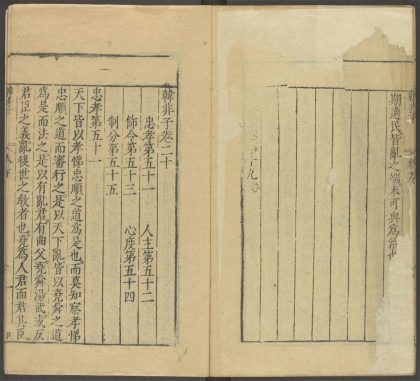 期適民皆亂之端未可與為治也
韓非子卷二十
忠孝第五十一
人主第五十二
飭令第五十三
心度第五十四
制分第五十五
忠孝第五十一
天下皆以孝悌忠順之道為是也而莫知察孝悌
忠順之道而審行之是以天下亂皆以堯舜之道
為是而法之是以有亂君有曲父堯舜湯武或反
君臣之義亂後世之教者也堯為人君而君其臣